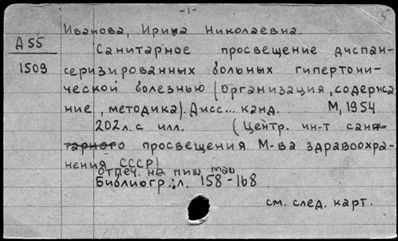 -1-
5
Иванова, Ирина Николаевна.
А55
1509
Санитарное просвещение диспан-
серизированных больных гипертони-
ческой болезнью (Организация, содержа
ние, методика). Дисс... канд. М, 1954.
202л. с илл. (Центр. ин-т сани-
тарного просвещения М-ва здравоохра-
нения СССР)
отпеч. на пиш маш
Библиогр.: л. 158-168
см. след. карт.